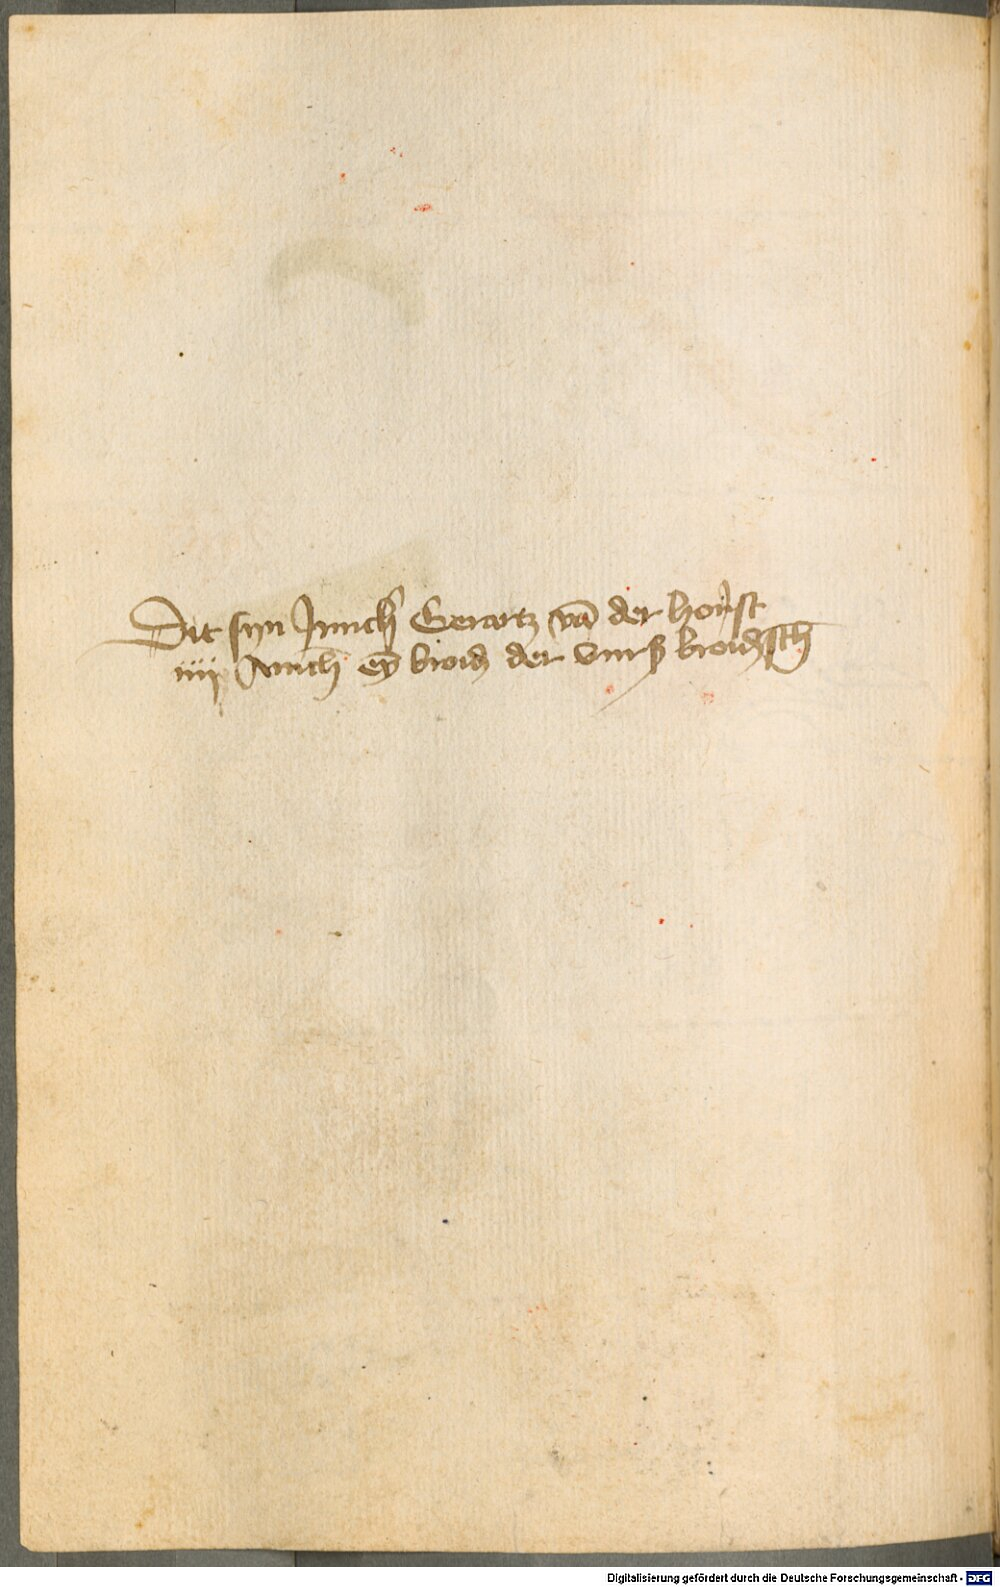 Dit syn Junch' Gerartz vā der Horst
iiij Anich eȳ broid' der vurß broid'sch
Digitalisierung gefördert durch die Deutsche Forschungsgemeinschaft - DFG